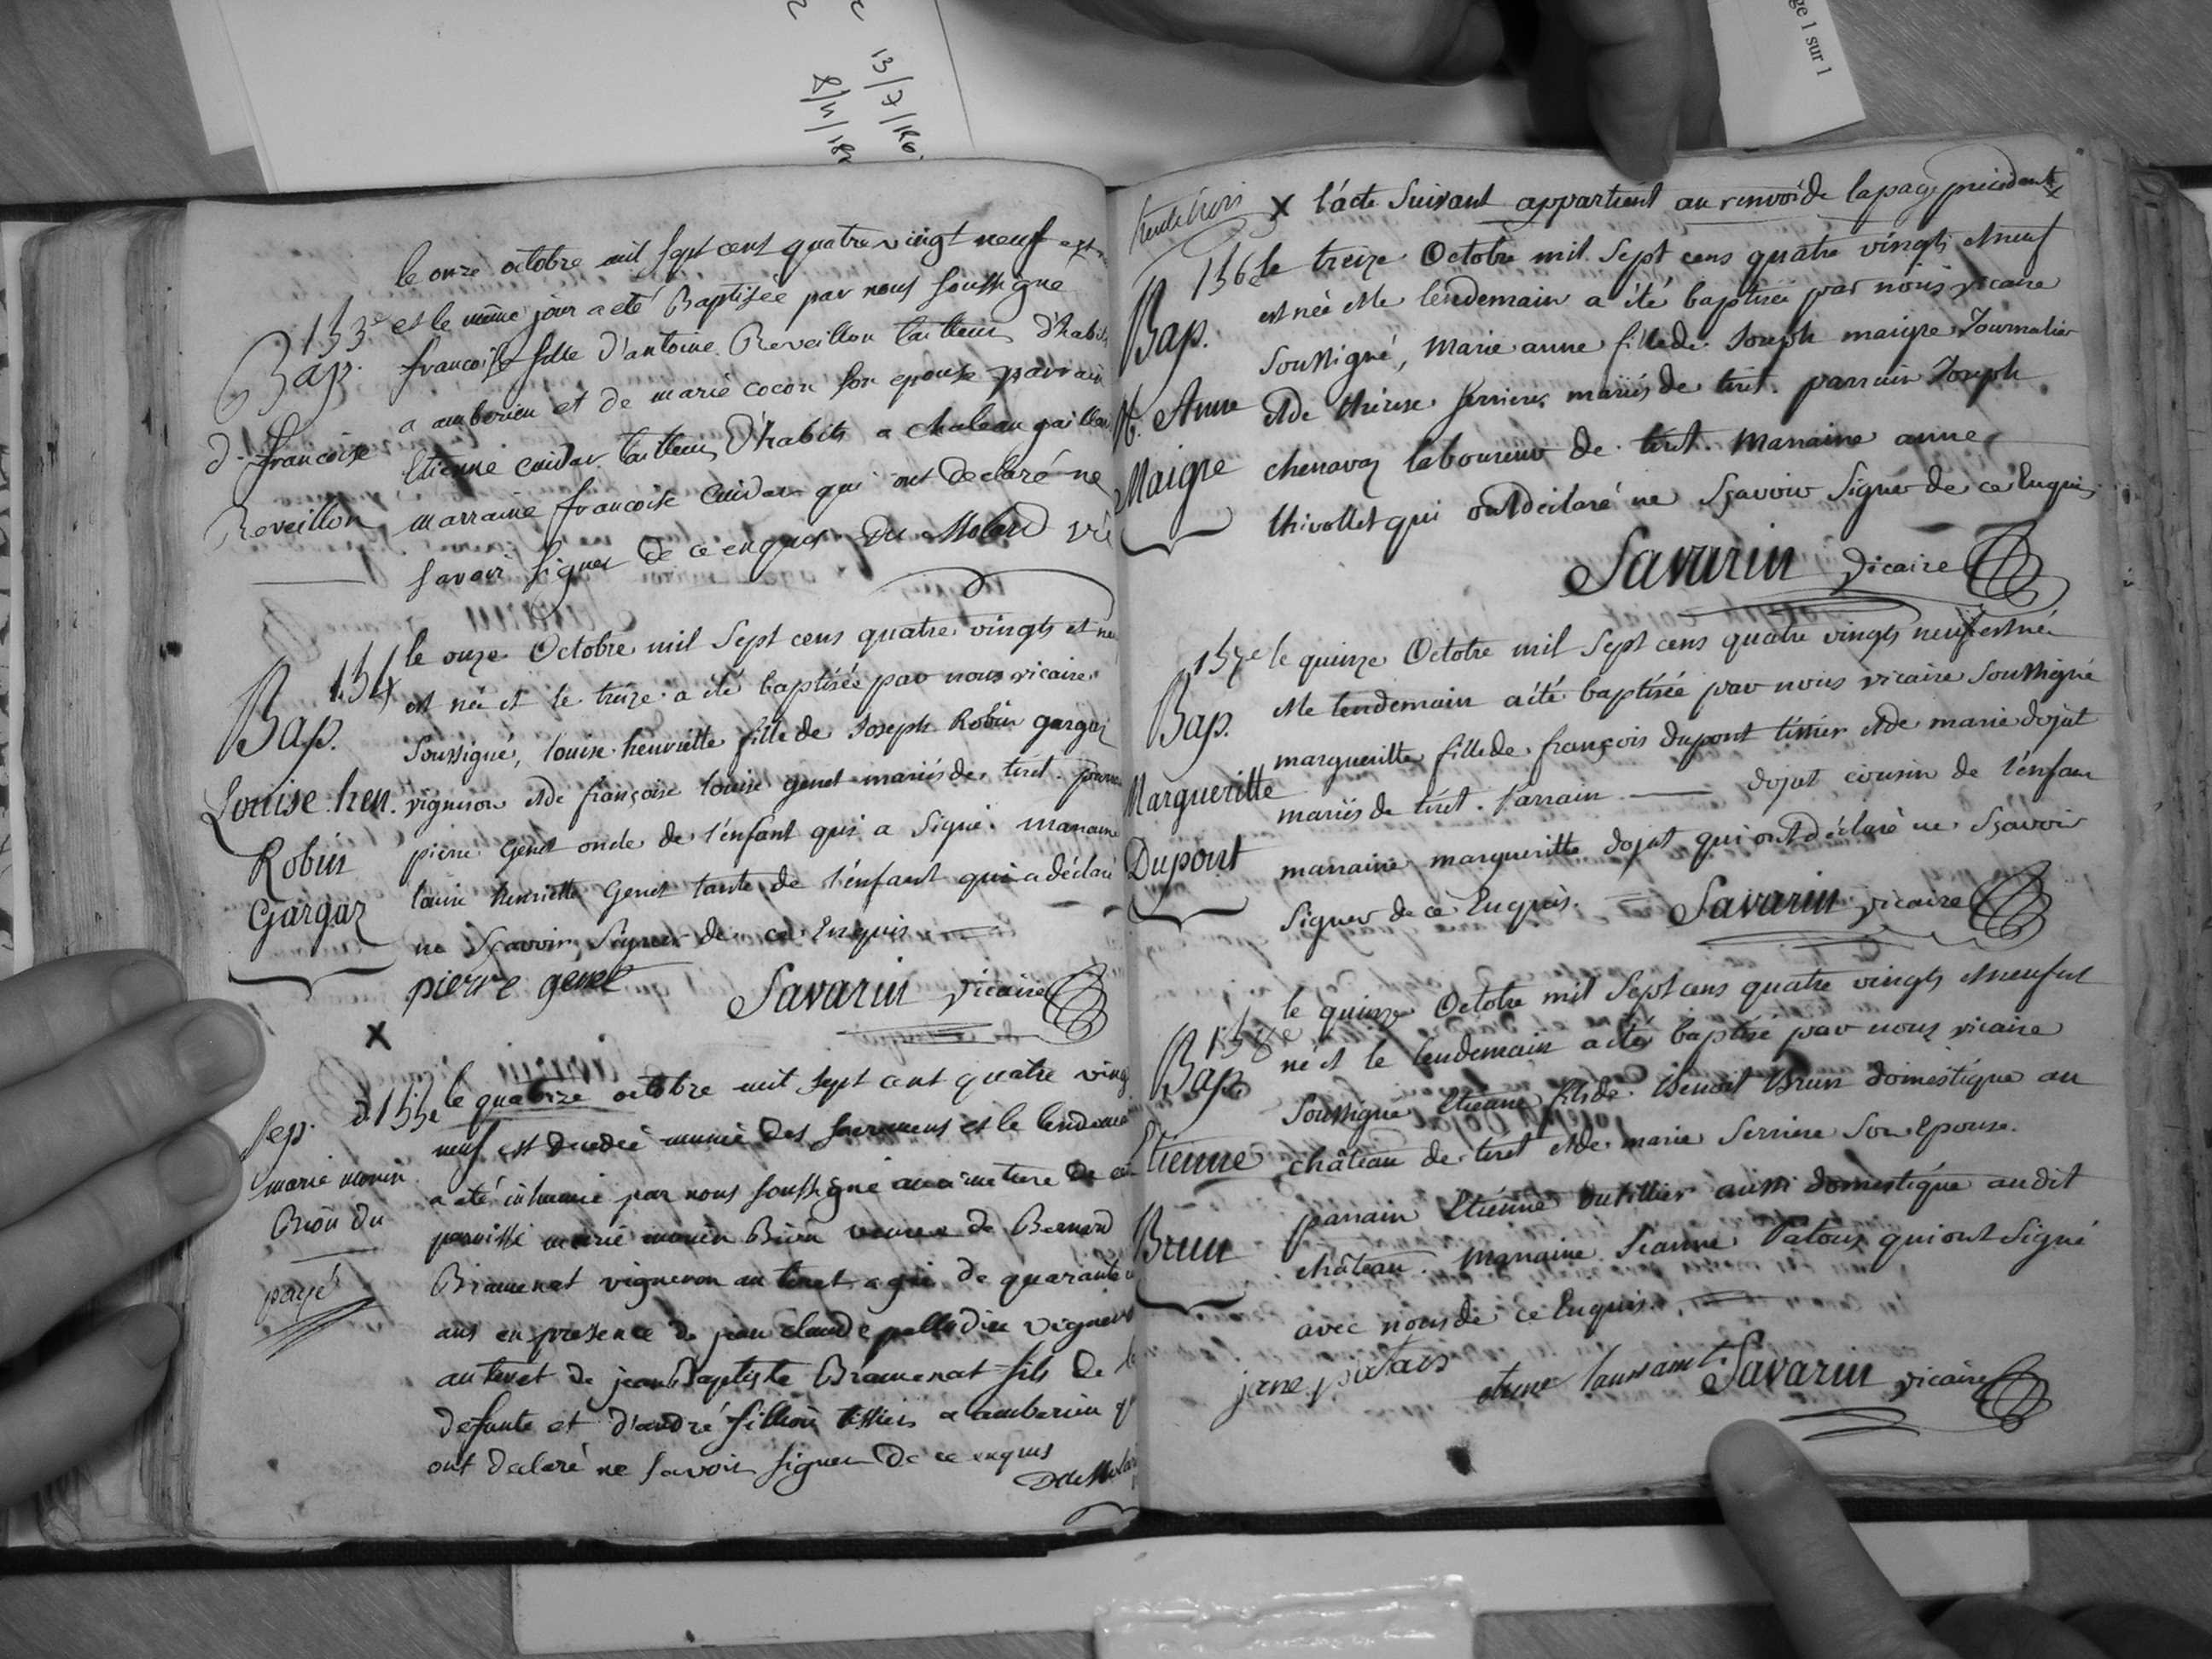 13/7/18
8/4/182
ge 1 sur 1
le onze octobre mil sept cent quatre vingt neuf est
153e et le même jour a eté Baptisée par nous soussigne
Bap. francoise fille d'antoine Reveillon tailleur d'habits
a amberieu et de marie cocon son epouse parrain
d. francoise Etienne cuidar tailleur d'habits a chateau gaillard
Reveillon marraine francoise cuidar qui ont declaré ne
savoir signer de ce enquis Du Molard vi
154 le onze Octobre mil Sept cens quatre vingts et neu
Bap. est née et le treize a été baptisée par nous vicaire
Soussigné, louise henriette fille de Joseph Robin gargaz
Louise hen. vigneron et de françoise louise genet mariés de tiret.
Robin pierre Genet oncle de l'enfant qui a Signé. Marraine
Gargaz louise henriette Genet tante de l'enfant qui a déclaré
ne Sçavoir Signer de ce Enquis
pierre genet Savarin vicaire
X
Sep. d 155e le quatorze octobre mil sept cent quatre ving
neuf est decedée munie des sacremens et le lendemain
marie monin a été inhumée par nous soussigné au cimetiere de
Brou du paroisse marie monin Brou veuve de Bernard
payé Bramerat vigneron au tiret agée de quarante
ans en presence de jean claude palledieu vigneron
au tiret de jean Baptiste Bramerat fils de
defunte et d'andré fillion tissier a amberieu
ont declaré ne savoir signer de ce enquis
X l'acte Suivant appartient au renvoi de la page précédente
156e le treize Octobre mil Sept cens quatre vingts et neuf
Bap. est née et le lendemain a été baptisée par nous vicaire
Soussigné, Marie anne fille de Joseph maigre Journalier
M. Anne et de thérèse serriere mariés de tiret. parrain Joseph
Maigre chenavaz laboureur de tiret. Marraine anne
thivollet qui ont déclaré ne Sçavoir Signer de ce Enquis
Savarin vicaire
157e le quinze Octobre mil Sept cens quatre vingts neuf est née
Bap. et le lendemain a été baptisée par nous vicaire Soussigné
margueritte fille de françois dupont tissier et de marie dojat
Margueritte mariés de tiret. Parrain — dojat cousin de l'enfant
Dupont marraine margueritte dojat qui ont déclaré ne Sçavoir
Signer de ce Enquis. Savarin vicaire
le quinze Octobre mil Sept cens quatre vingts et neuf est
158e né et le lendemain a été baptisé par nous vicaire
Bap. Soussigné Etienne fils de Benoit Brun domestique au
Etienne château de tiret et de marie Serriere Son Epouse.
parrain Etienne aussi domestique audit
Brun château. Marraine Jeanne qui ont Signé
avec nous de ce Enquis.
Savarin vicaire